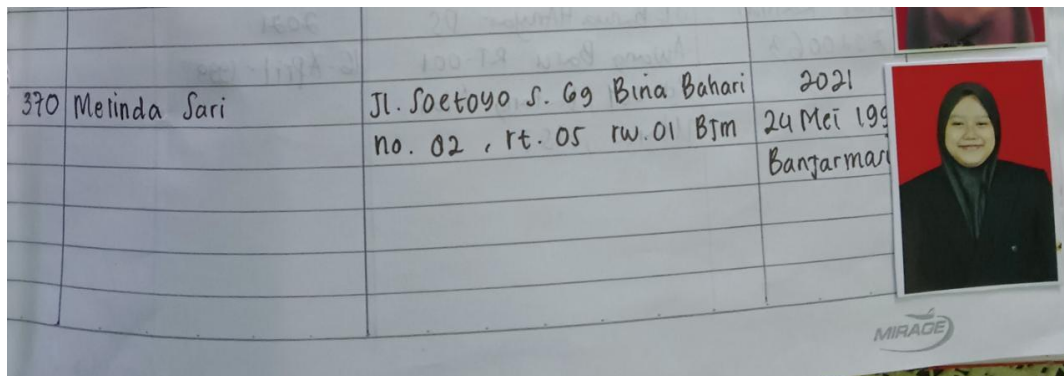 370 Melinda Sari Jl. Soetoyo S. Gg Bina Bahari 2021
no. 02, rt. 05 rw. 01 BJm 24 Mei 199
Banjarmasi
MIRAGE